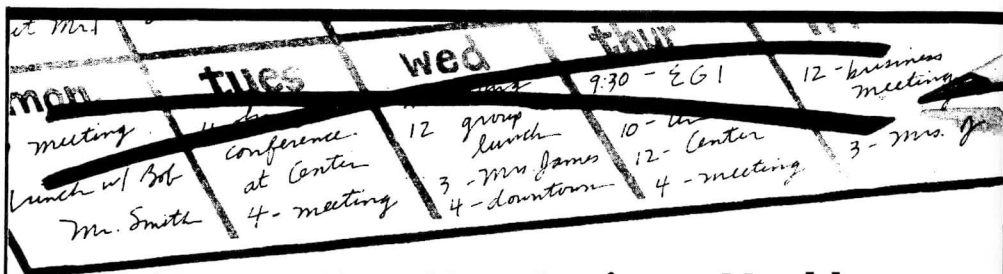 et Mr.
mon
meeting
Lunch w/ Bob
Mr. Smith
tues
conference
at Center
4 - meeting
wed
12 group
lunch
3 - Mrs James
4 - downtown
thur
9:30 - EGI
10 -
12 - Center
4 - meeting
12 - business
meeting
3 - Mrs. J